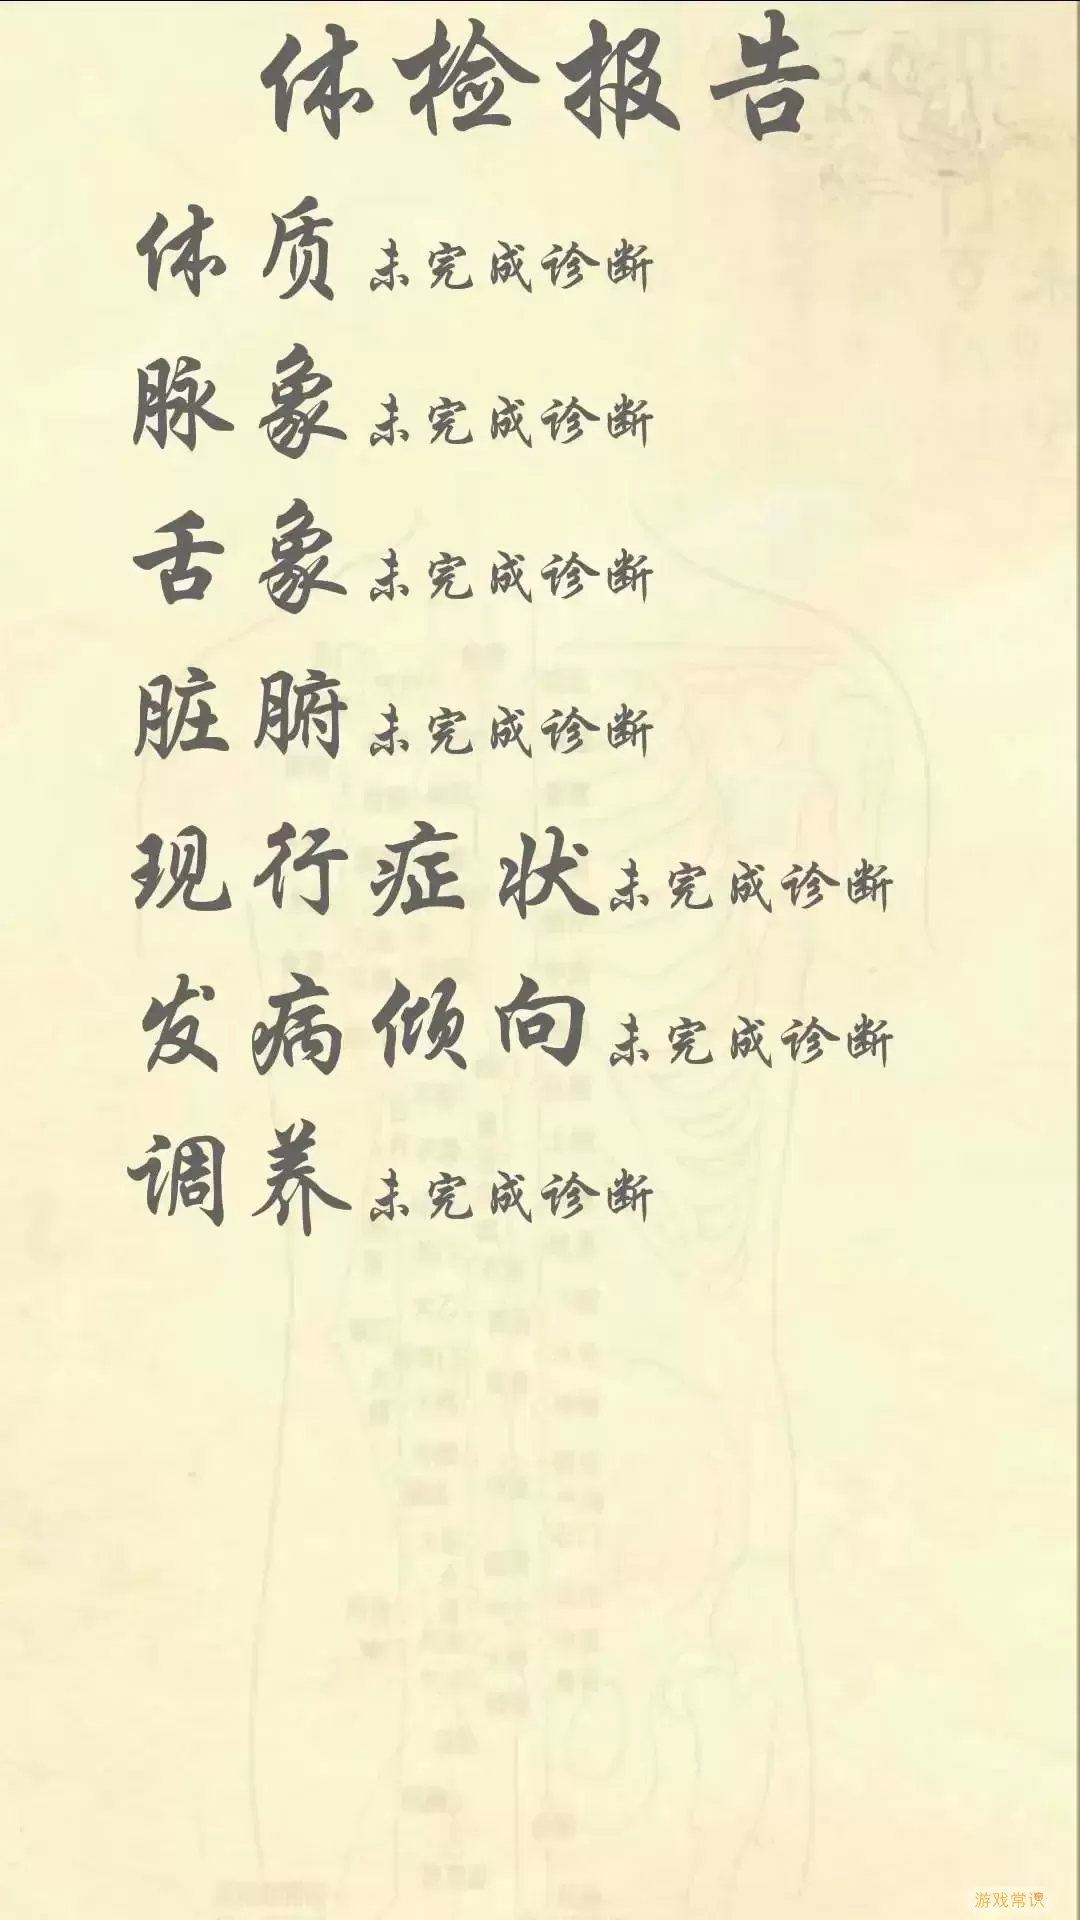 体检报告
体质 未完成诊断
脉象 未完成诊断
舌象 未完成诊断
脏腑 未完成诊断
现行症状 未完成诊断
发病倾向 未完成诊断
调养 未完成诊断
游戏常识